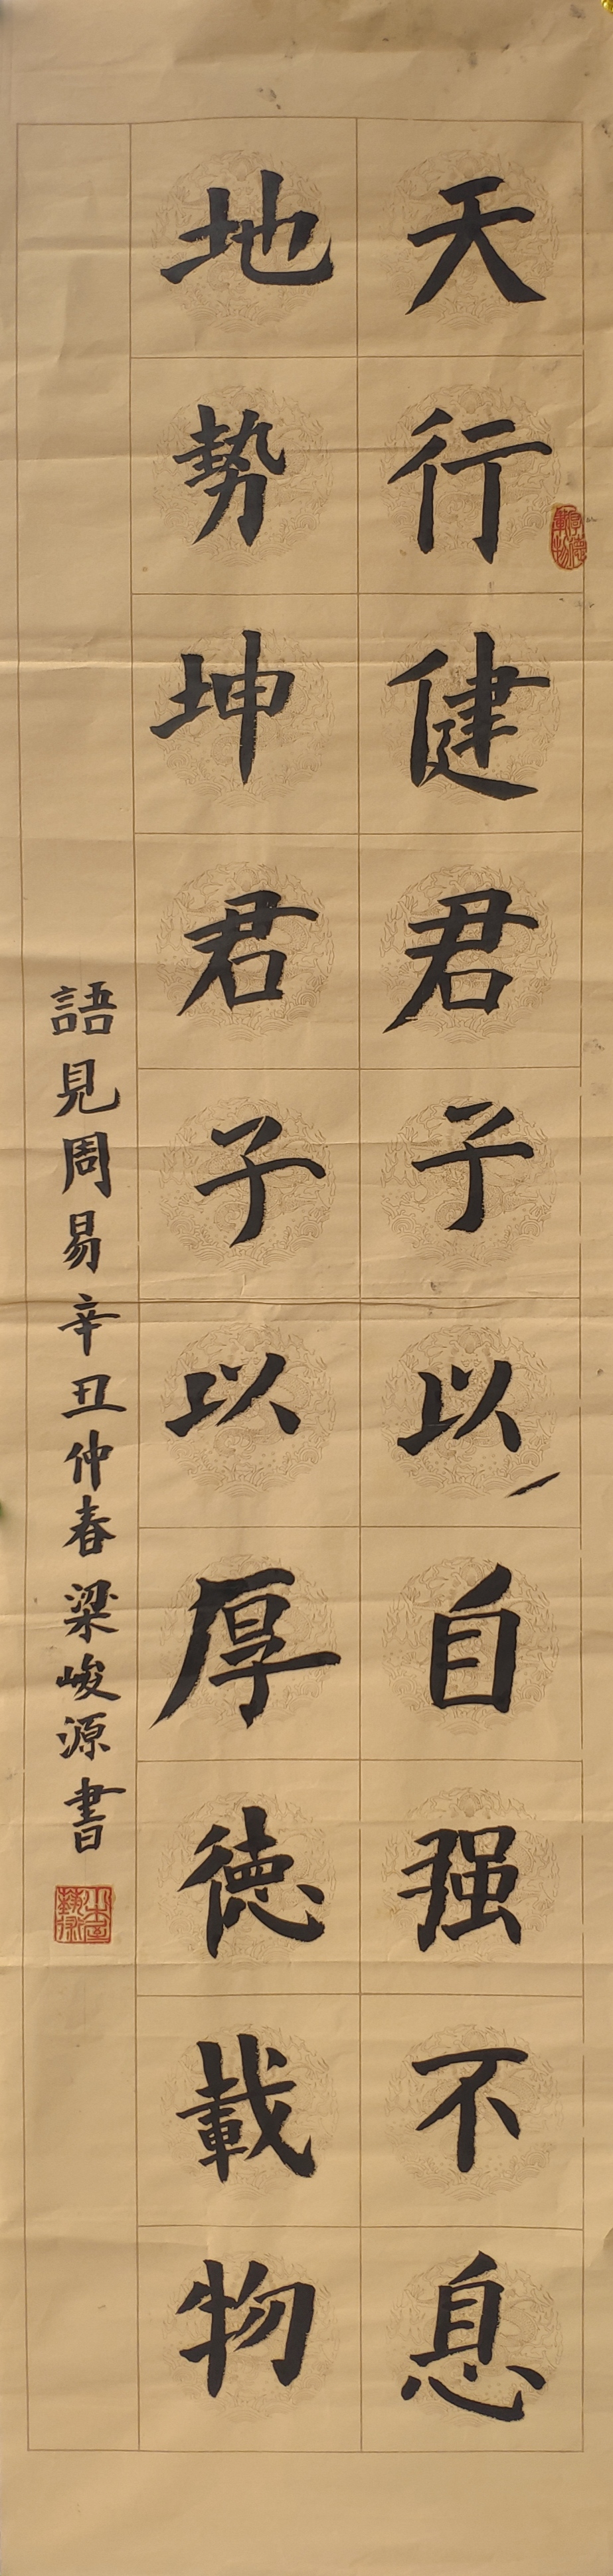 天行健君子以自强不息
地勢坤君子以厚德載物
語見周易辛丑仲春梁峻源書
厚德載物